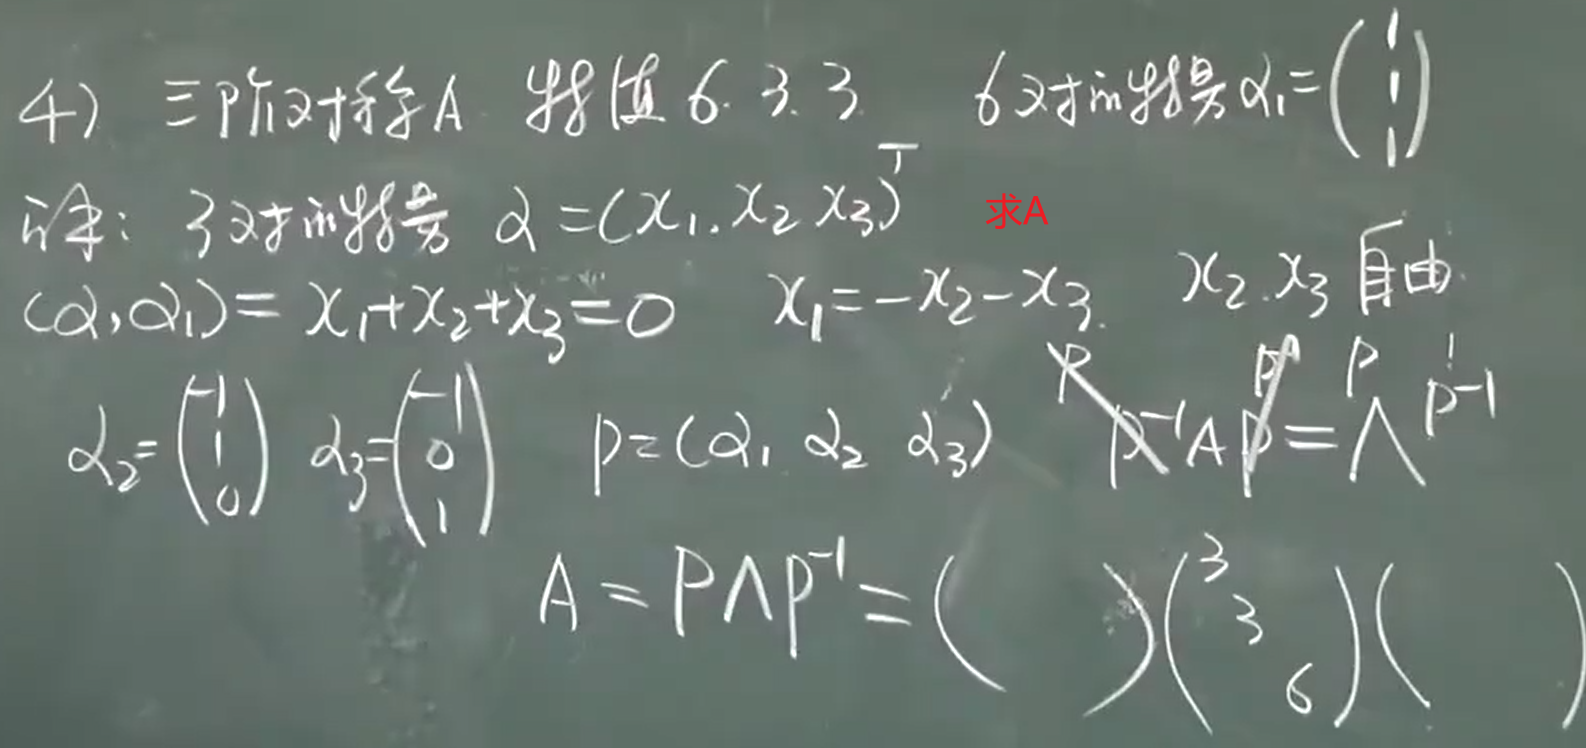 4) 三阶对称A 特值 6. 3. 3 6对应特量 α₁=(1 1 1)
详: 3对应特量 α=(x₁, x₂ x₃)ᵀ 求A
(α,α₁)=x₁+x₂+x₃=0 x₁=-x₂-x₃. x₂.x₃自由.
α₂=(-1 1 0) α₃=(-1 0 1) P=(α₁ α₂ α₃) P P⁻¹AP P⁻¹=P Λ P⁻¹
A=PΛP⁻¹=( )(3 3 6)( )